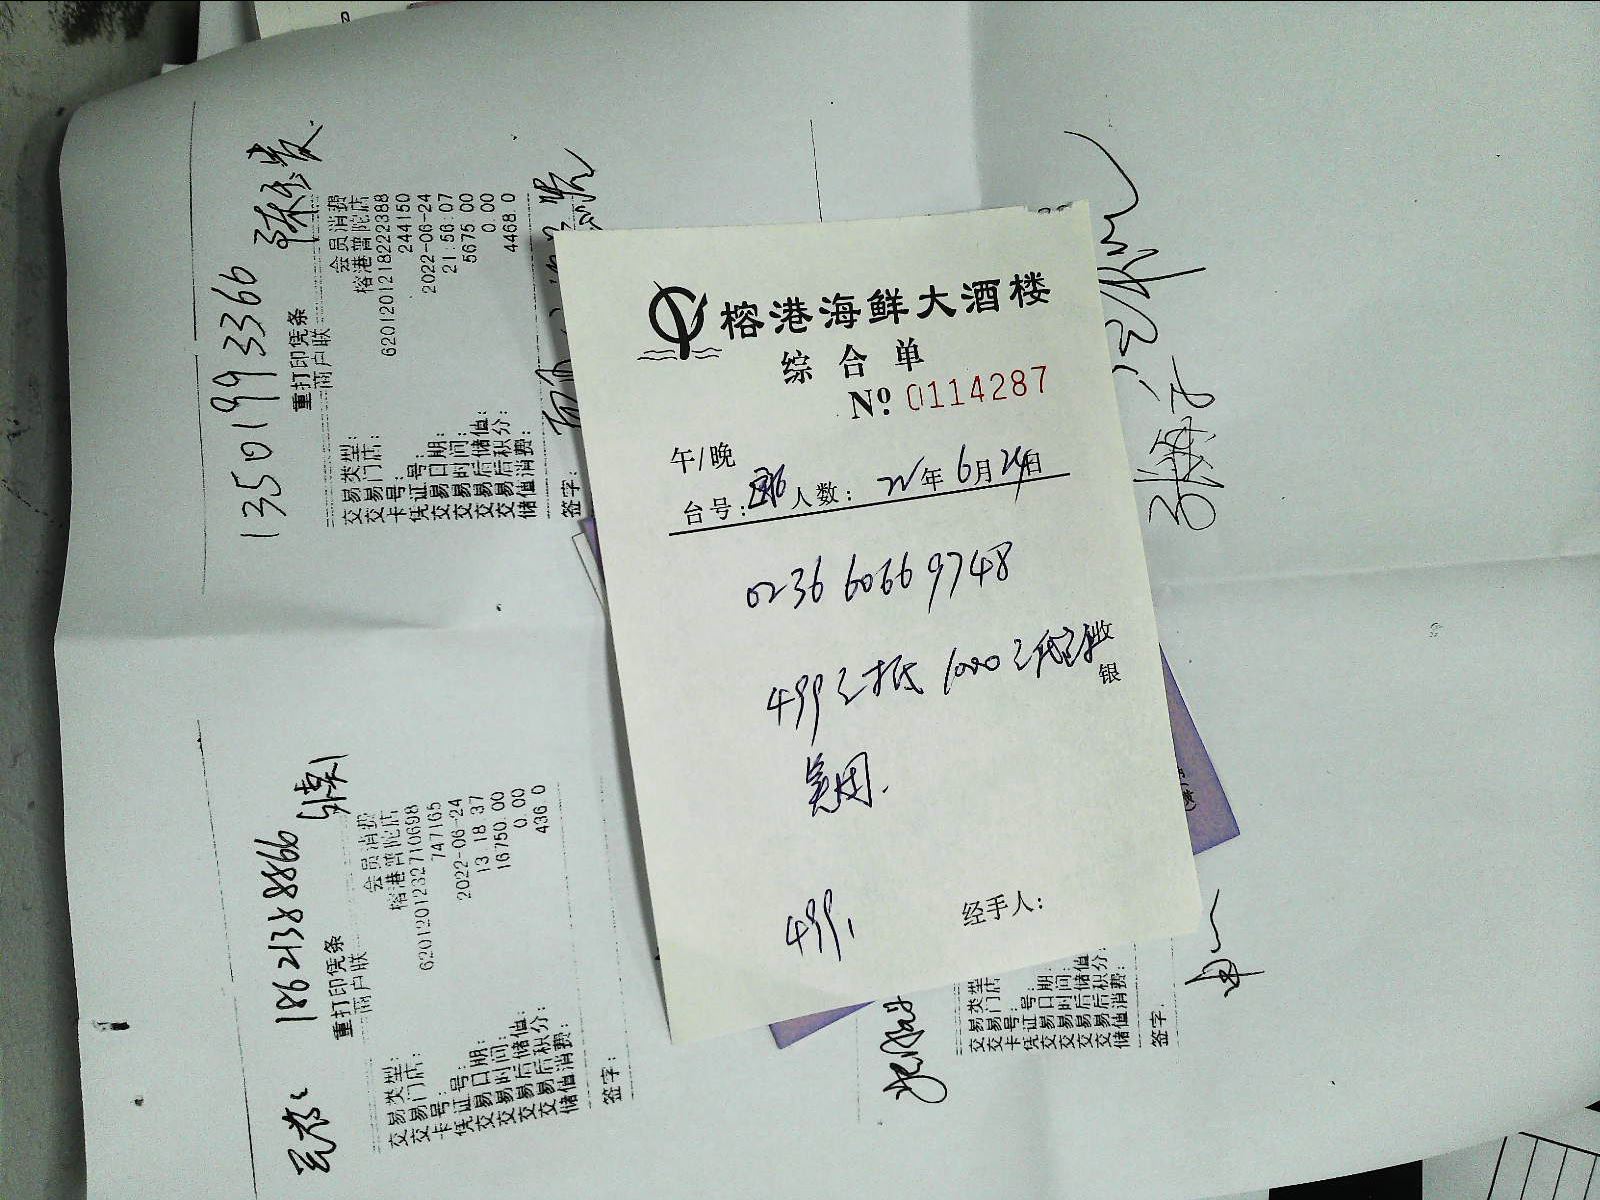 榕港海鲜大酒楼
综合单
No. 0114287
午/晚
台号: 人数: 22年6月24日
0236 6066 9748
499元抵1000元 收
银
美团.
499.
经手人:
13501993366
重打印凭条
商户联
交易类型: 会员消费
交易门店: 榕港普陀店
卡号: 6201201218222388
凭证号: 244150
交易日期: 2022-06-24
交易时间: 21:56:07
交易后储值: 5675.00
交易后积分: 0.00
储值消费: 4468.0
签字:
18621388866
重打印凭条
商户联
交易类型: 会员消费
交易门店: 榕港普陀店
卡号: 6201201232710698
凭证号: 747165
交易日期: 2022-06-24
交易时间: 13 18 37
交易后储值: 16750.00
交易后积分: 0.00
储值消费: 436 0
签字:
交易类型
交易门店
卡号:
凭证号:
交易日期:
交易时间:
交易后储值
交易后积分
储值消费:
签字.